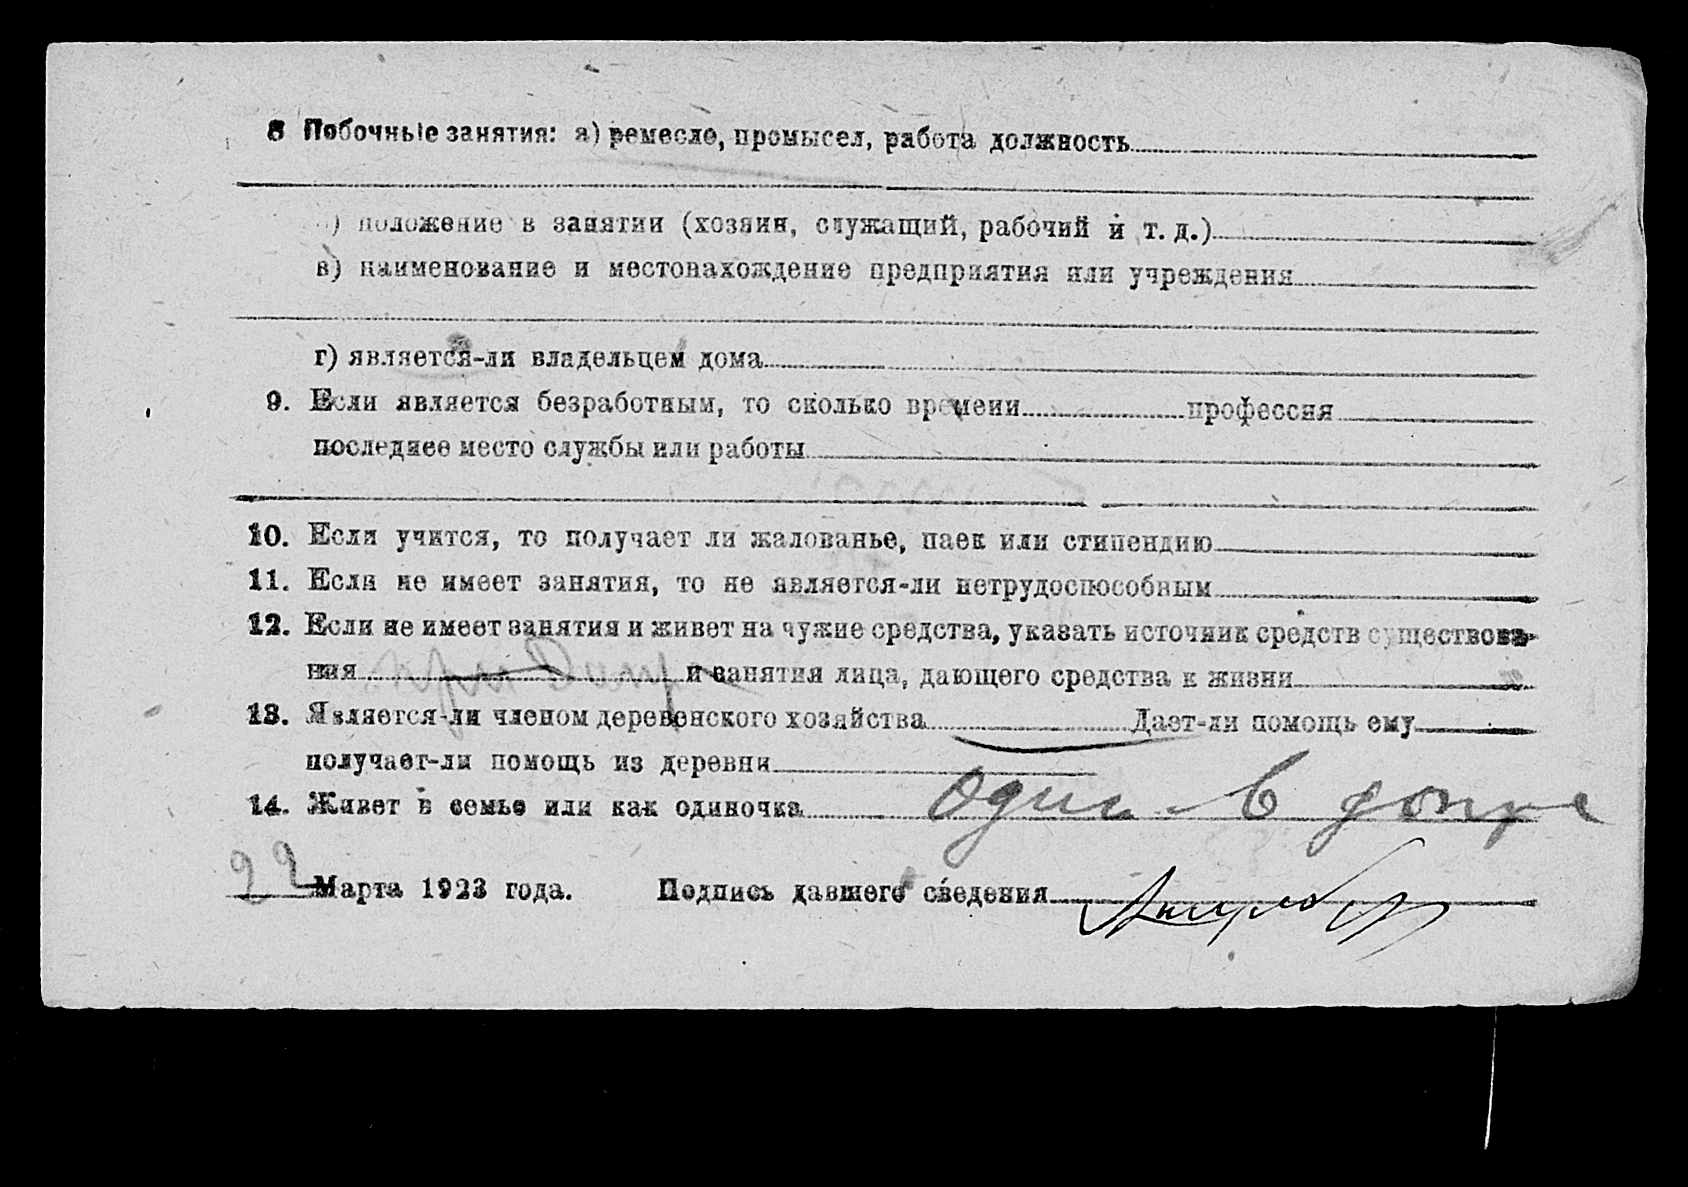 8 Побочные занятия: а) ремесло, промысел, работа должность
б) положение в занятии (хозяин, служащий, рабочий и т. д.)
в) наименование и местонахождение предприятия или учреждения
г) является-ли владельцем дома
9. Если является безработным, то сколько времени профессия
последнее место службы или работы
10. Если учится, то получает ли жалованье, паек или стипендию
11. Если не имеет занятия, то не является-ли нетрудоспособным
12. Если не имеет занятия и живет на чужие средства, указать источник средств существова-
ния и занятия лица, дающего средства к жизни
13. Является-ли членом деревенского хозяйства Дает-ли помощь ему
получает-ли помощь из деревни
14. Живет в семье или как одиночка один в
Марта 1923 года. Подпись давшего сведения